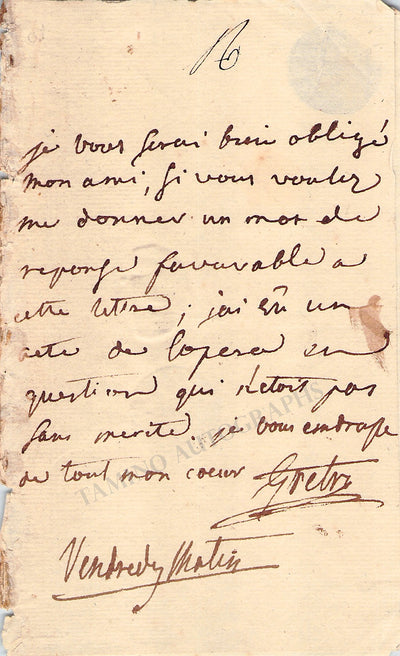 R
je vous serai bien obligé
mon ami, si vous voulez
me donner un mot de
reponse favorable a
cette lettre, jai eu un
acte de lopera en
question qui n'etoit pas
sans merite. je vous embrasse
de tout mon coeur Grétry
Vendredy Matin
TAMINO AUTOGRAPHS